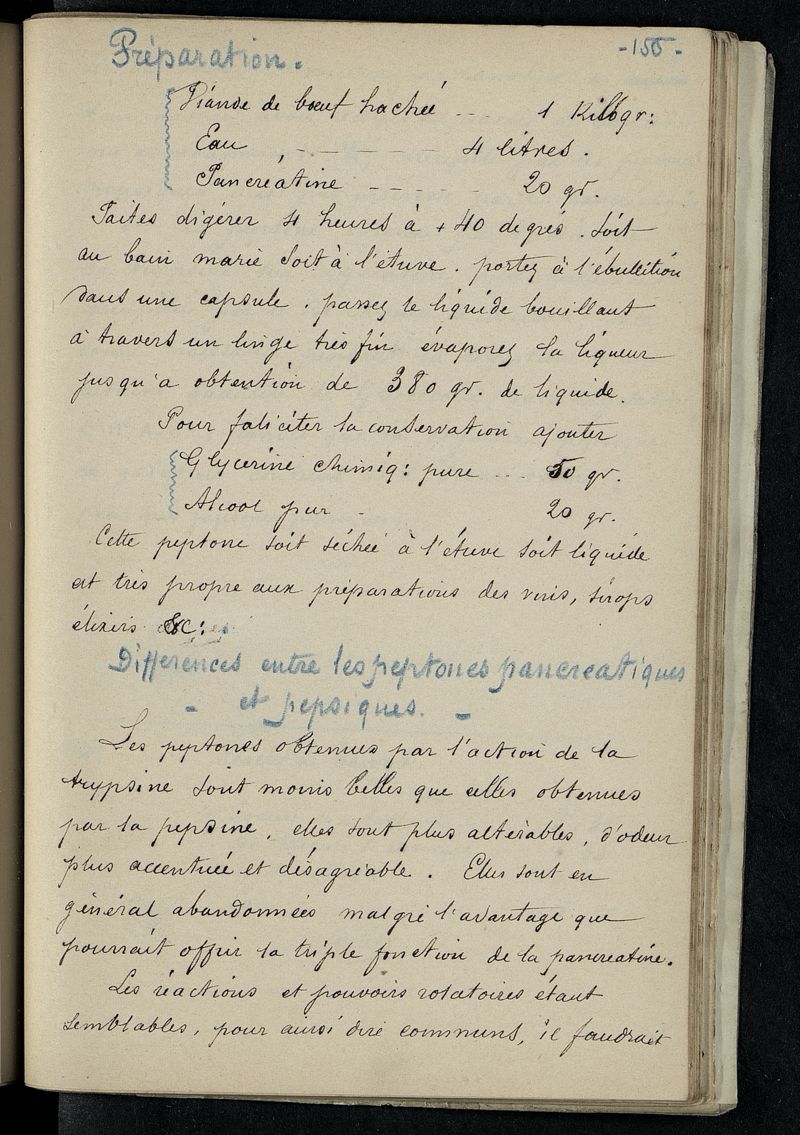 -155-
Préparation.
Viande de bœuf hachée --- 1 Kilogr:
Eau - - - - - - 4 litres.
Pancréatine - - - - - 20 gr.
Faites digérer 4 heures à + 40 degrés. soit
au bain marie soit à l'étuve. portez à l'ébullition
dans une capsule. passez le liquide bouillant
à travers un linge très fin évaporez la liqueur
jusqu'a obtention de 380 gr. de liquide.
Pour faliciter la conservation ajouter
Glycerine chimiq: pure --- 50 gr.
Alcool pur - 20 gr.
Cette peptone soit séchée à l'étuve soit liquide
est très propre aux préparations des vins, sirops
élixirs &c:
Differences entre les peptones pancreatiques
- et pepsiques. -
Les peptones obtenues par l'action de la
trypsine sont moins belles que celles obtenues
par la pepsine, elles sont plus altérables, d'odeur
plus accentuée et désagréable. Elles sont en
général abandonnées malgré l'avantage que
pourrait offrir la triple fonction de la pancreatine.
Les réactions et pouvoirs rotatoires étant
semblables, pour ainsi dire communs, il faudrait